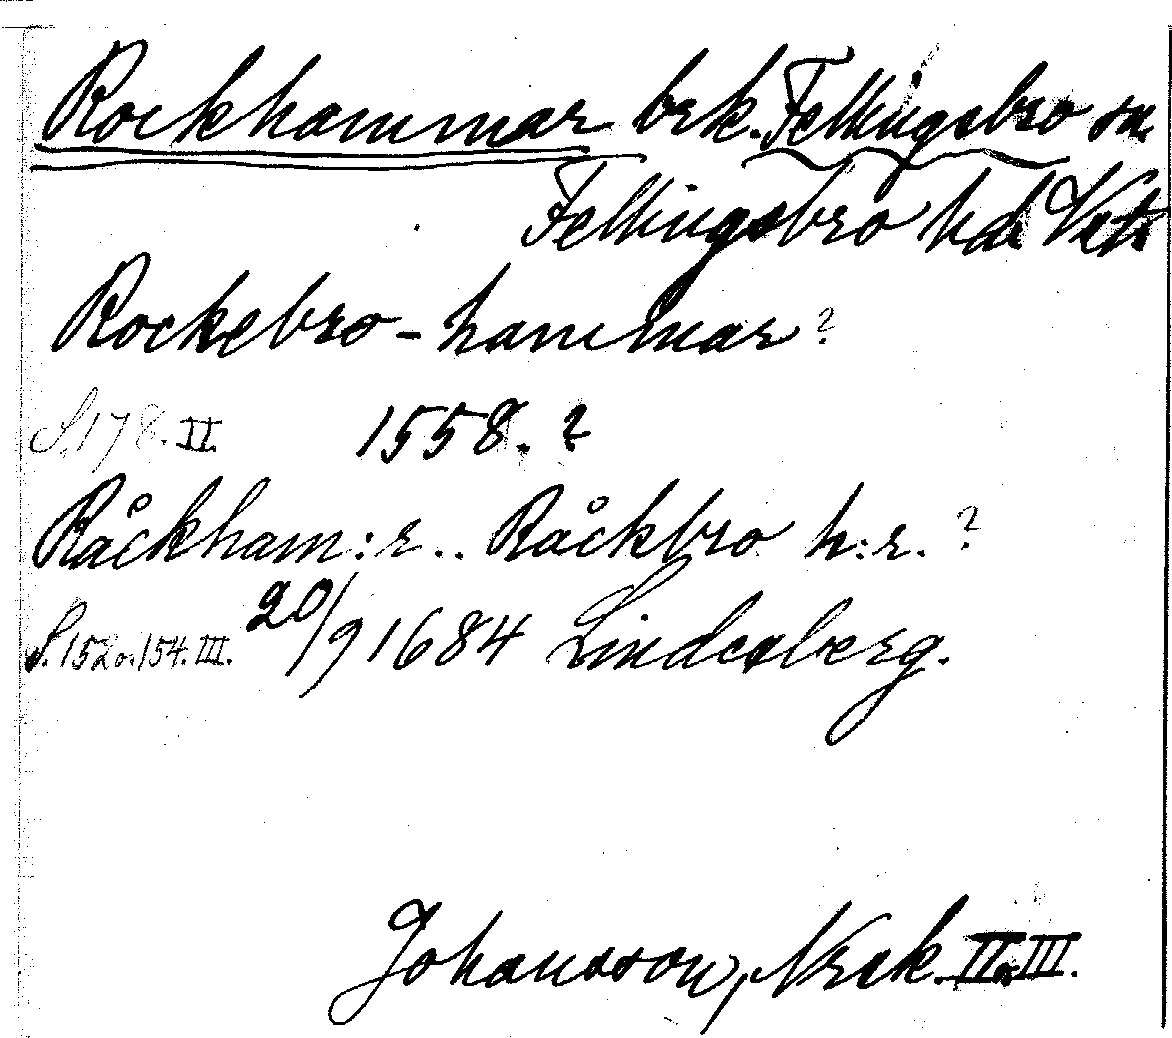 Rockhammar brk. Fellingsbro sn.
Fellingsbro hd. Vstm
Rockebro-hammar?
S. 178. II. 1558. ?
Råckham:r.. Råckbro h:r. ?
S. 152 o. 154. III. 20/9 1684 Lindesberg.
Johansson, Norsk. II o. III.